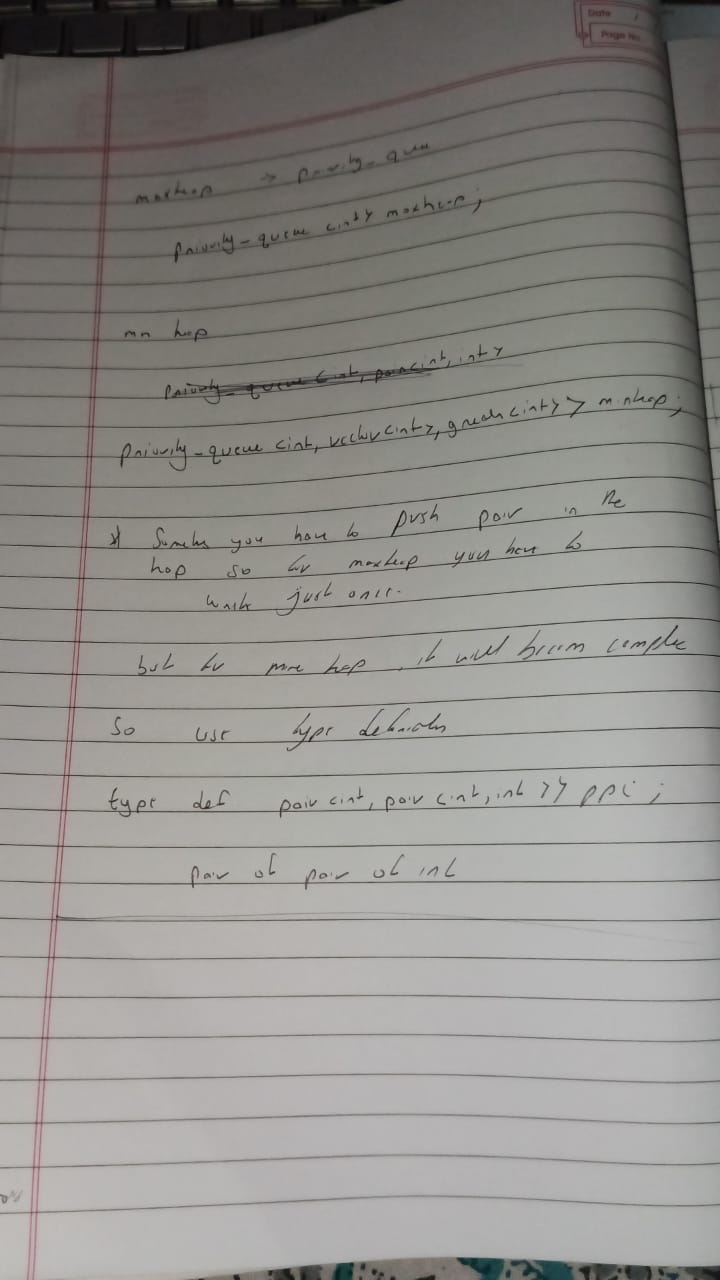 Date /
Page No
maxheap -> priority_queue
priority_queue <int> maxheap;
min heap
priority_queue <int, pair<int, int>
priority_queue <int, vector<int>, greater<int>> minheap;
* Sometimes you have to push pair in the
heap so for maxheap you have to
write just once.
but for min heap, it will become complex
So use type definition
type def pair <int, pair <int, int >> ppi;
pair of pair of int